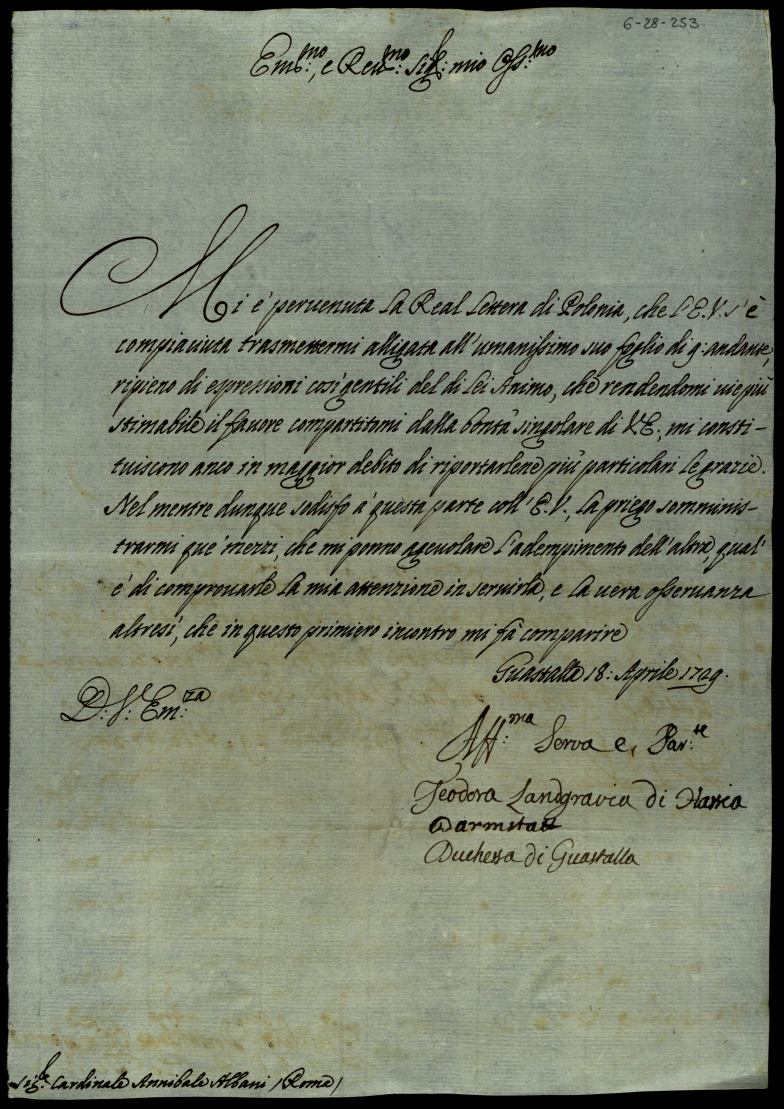 6-28-253
Em.mo, e Rev.mo Sig.r mio Oss.mo
Mi é pervenuta la Real Lettera di Polonia, che l'E.V. s'è
compiaciuta trasmettermi alligata all'umanissimo suo foglio di 9: andante,
ripieno di espressioni cosi gentili del di Lei Animo, che rendendomi vie più
stimabile il favore compartitomi dalla bontà singolare di V.E., mi consti-
tuiscono anco in maggior debito di riportarlene più particolari le grazie.
Nel mentre dunque sodisfo a' questa parte coll'E.V., la priego somminis-
trarmi que' mezzi, che mi ponno agevolare l'adempimento dell'altra, qual'
é di comprovarle la mia attenzione in servirla, e la vera osservanza
altresì, che in questo primiero incontro mi fà comparire
Guastalla 18: Aprile 1729.
D: V: Em.za
Aff.ma Serva e, Par.te
Teodora Landgravia di Hassia
Darmstatt
Duchessa di Guastalla
Sig.r Cardinale Annibale Albani /Roma/